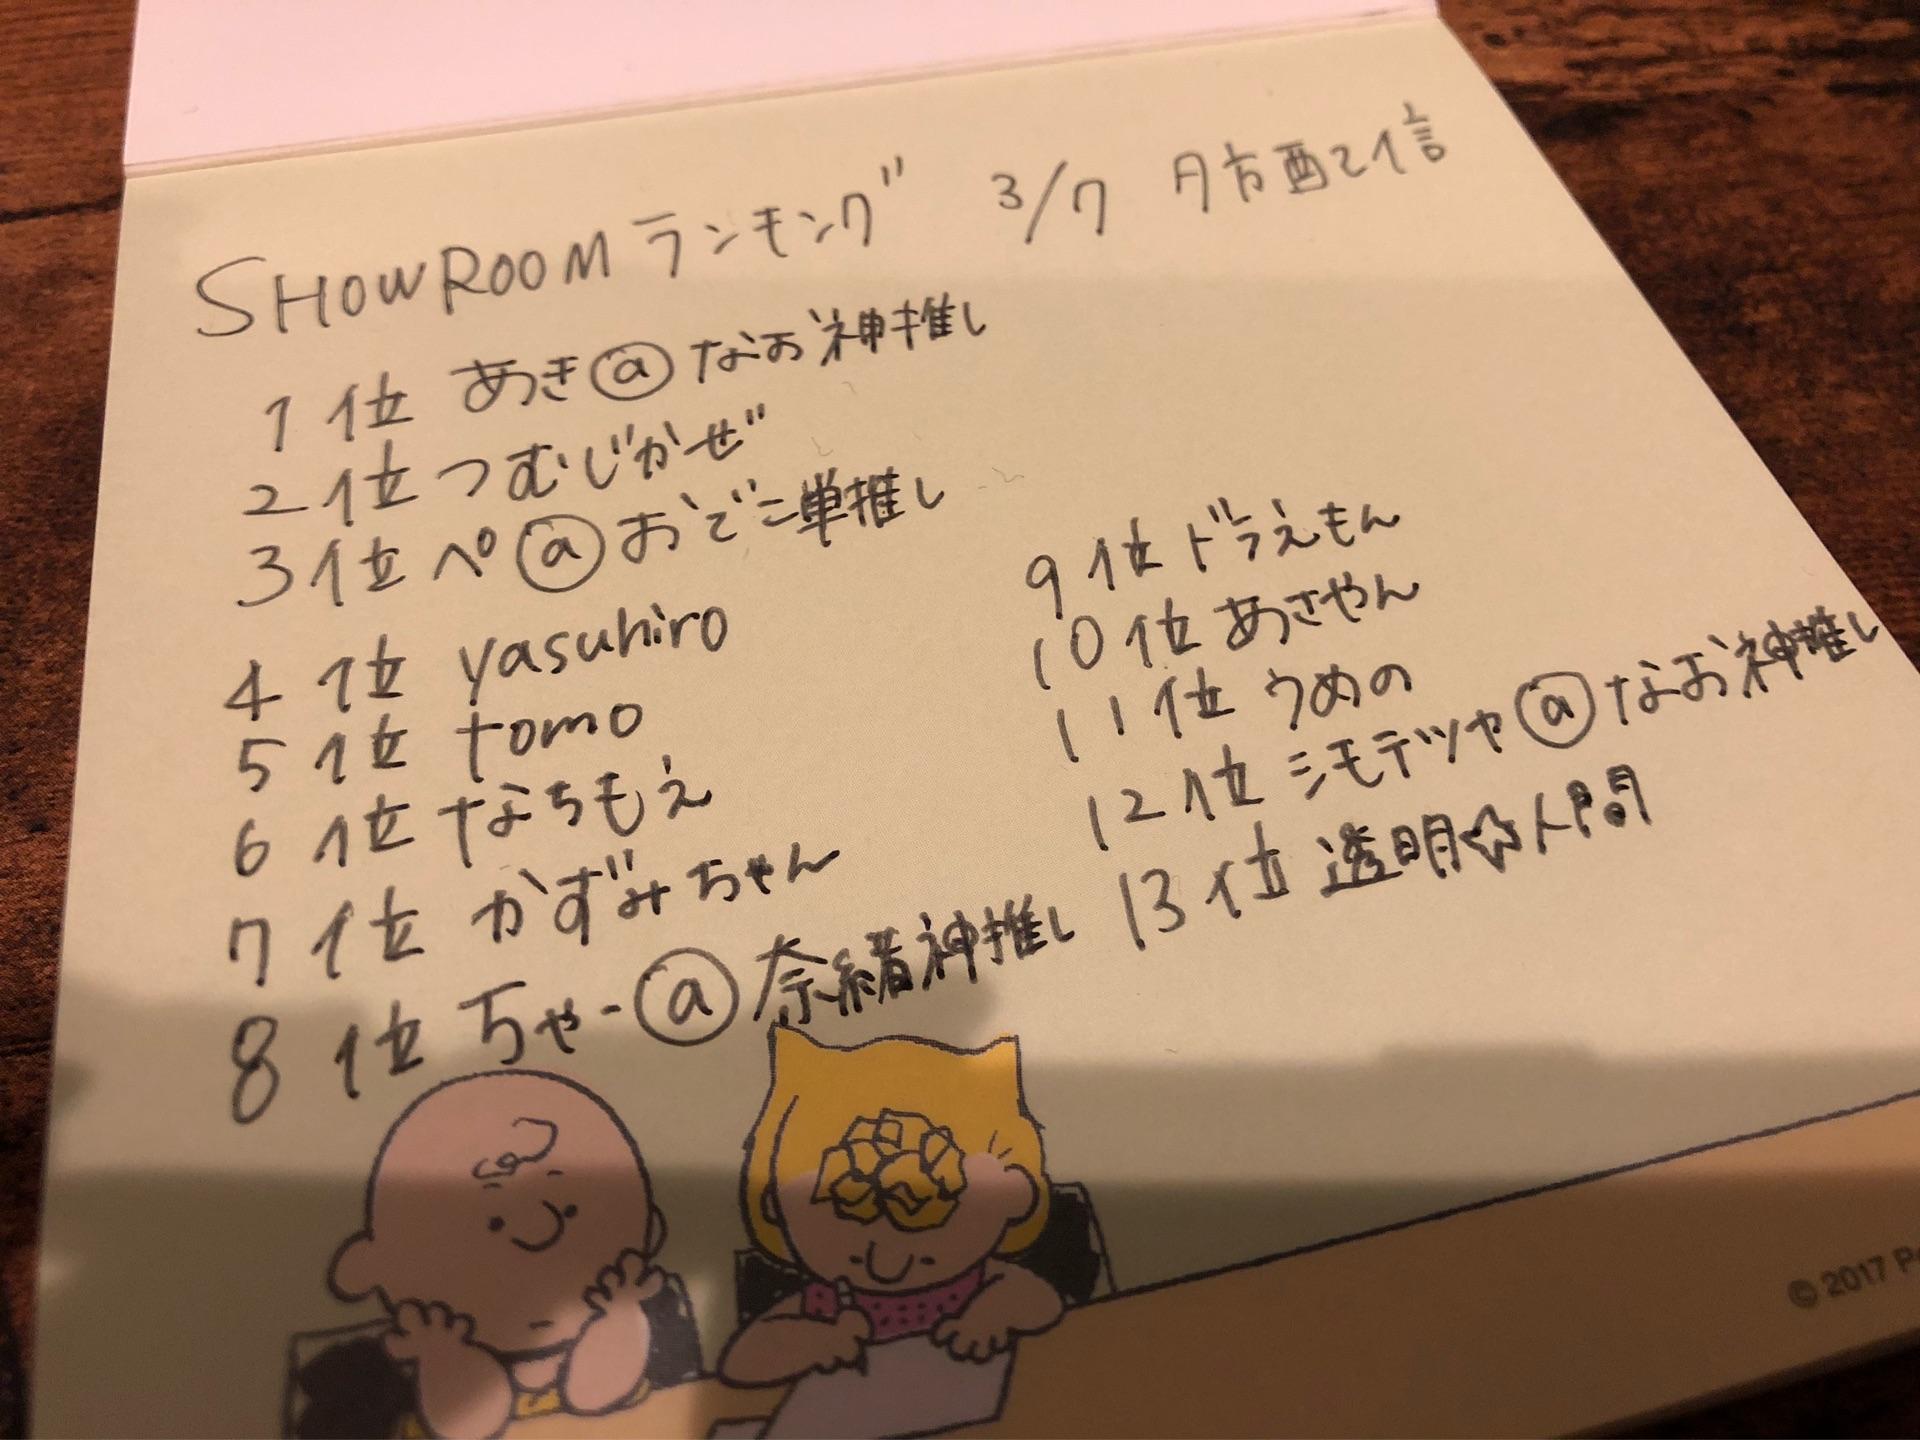 SHOWROOMランキング 3/7 夕方配信
1位 あきⓐなお神推し
2位 つむじかぜ
3位 ペⓐおでこ単推し
4位 yasuhiro
5位 tomo
6位 なちもえ
7位 かずみちゃん
8位 ちゃーⓐ奈緒神推し
9位 ドラえもん
10位 あさやん
11位 うめの
12位 シモテツヤⓐなお神推し
13位 透明☆人間
© 2017 P